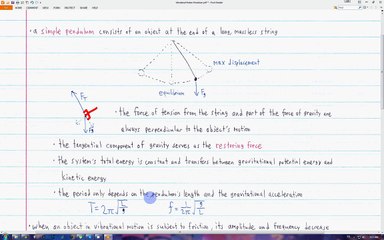 • a simple pendulum consists of an object at the end of a long, massless string
max displacement
equilibrium
F_T
F_g
F_g
• the force of tension from the string and part of the force of gravity are
always perpendicular to the object's motion
• the tangential component of gravity serves as the restoring force
• the system's total energy is constant and transfers between gravitational potential energy and
kinetic energy
• the period only depends on the pendulum's length and the gravitational acceleration
T = 2π√(L/g) f = 1/2π √(g/L)
• when an object in vibrational motion is subject to friction, its amplitude and frequency decrease